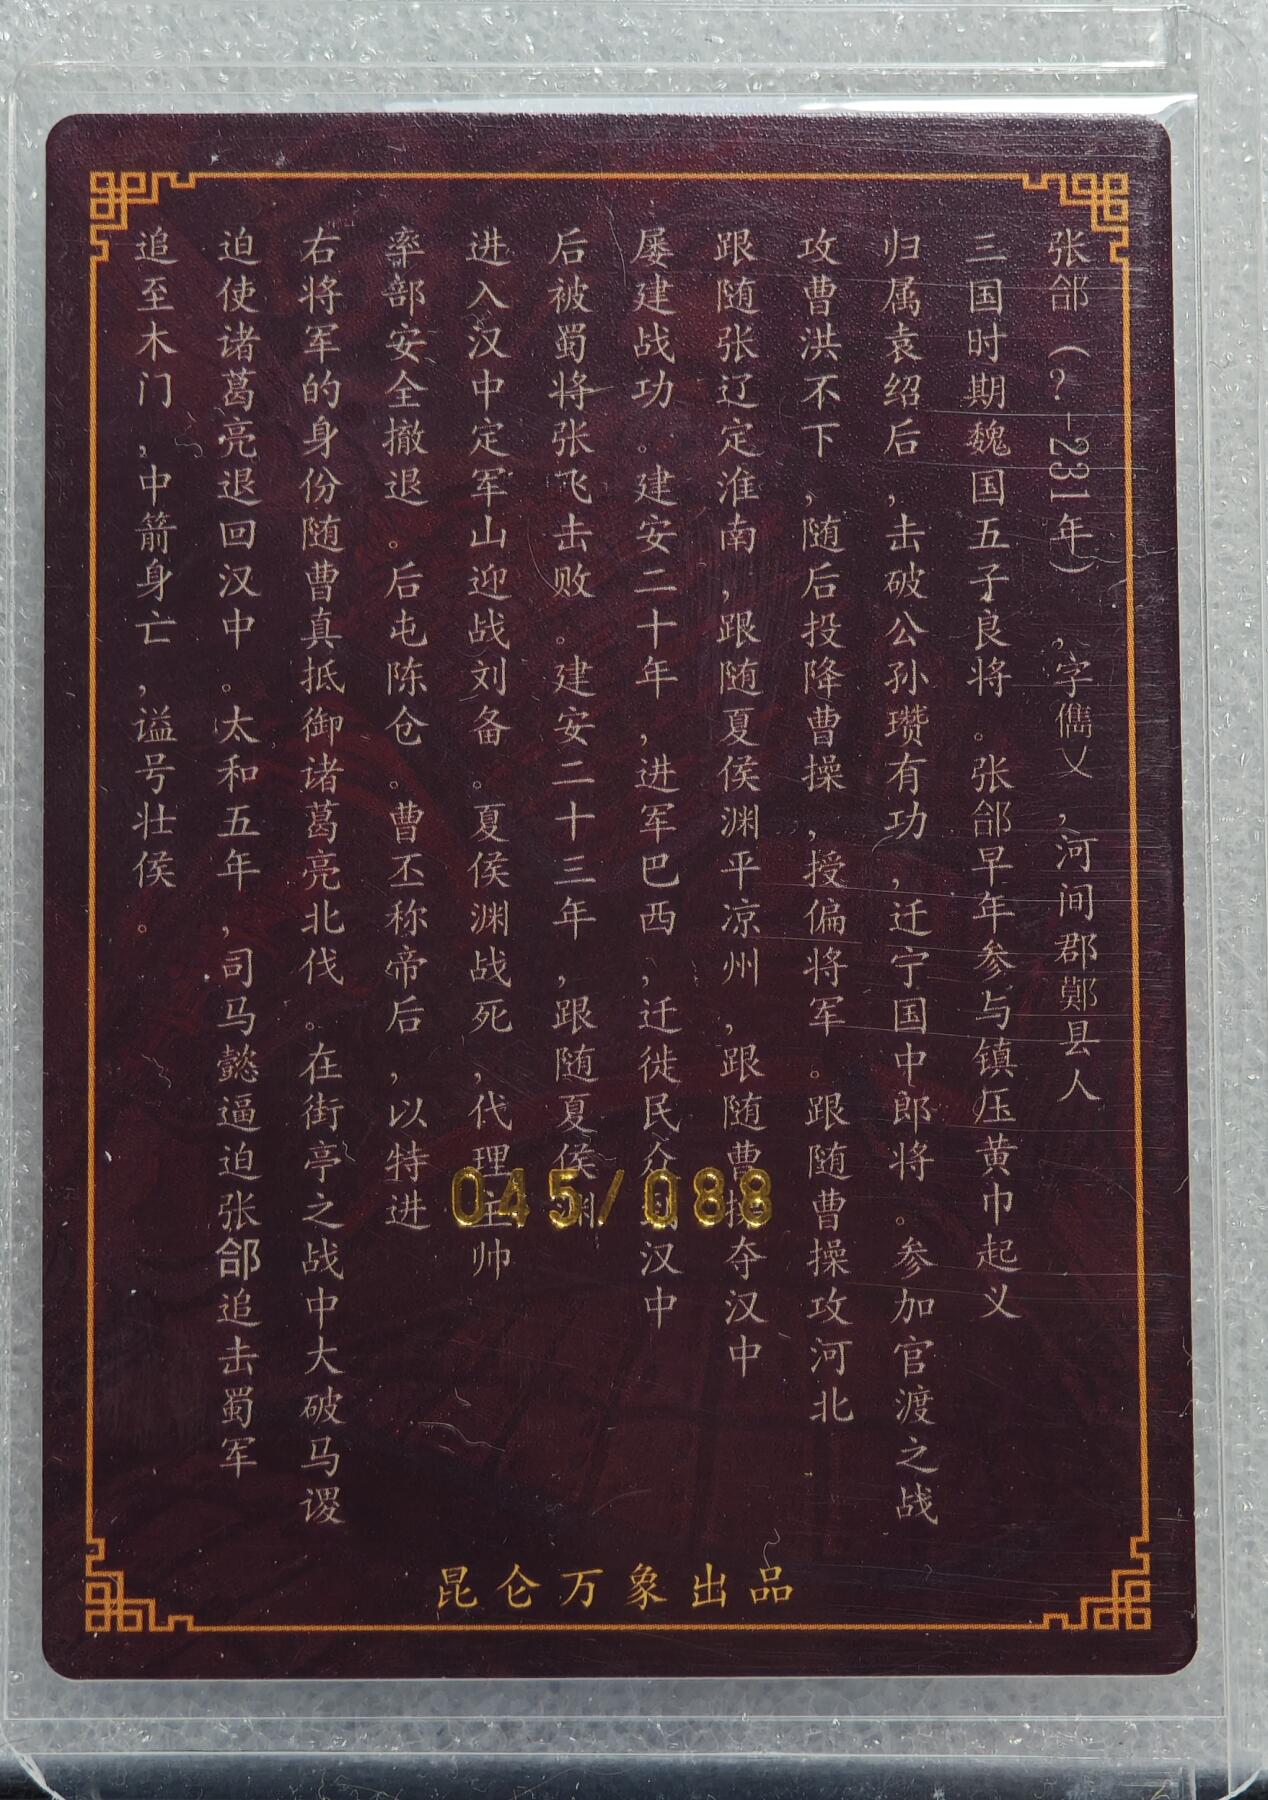 张郃（?-231年），字儁乂，河间郡鄚县人
三国时期魏国五子良将。张郃早年参与镇压黄巾起义
归属袁绍后，击破公孙瓒有功，迁宁国中郎将。参加官渡之战
攻曹洪不下，随后投降曹操，授偏将军。跟随曹操攻河北
跟随张辽定淮南，跟随夏侯渊平凉州，跟随曹操夺汉中
屡建战功。建安二十年，进军巴西，迁徙民众到汉中
后被蜀将张飞击败。建安二十三年，跟随夏侯渊
进入汉中定军山迎战刘备。夏侯渊战死，代理主帅
率部安全撤退。后屯陈仓。曹丕称帝后，以特进
右将军的身份随曹真抵御诸葛亮北伐。在街亭之战中大破马谡
迫使诸葛亮退回汉中。太和五年，司马懿逼迫张郃追击蜀军
追至木门，中箭身亡，谥号壮侯。
045/088
昆仑万象出品